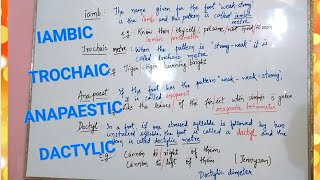 iamb : The name given for the foot "weak-strong"
is the iamb and this pattern is called iambic
metre.
IAMBIC
e.g. Know then thyself, presume not
iambic pentameter
Trochaic metre : When the pattern is "strong-weak" it is
called trochaic metre.
TROCHAIC
e.g. Tiger! Tiger! burning bright
Anapaest : If the foot has the pattern "weak-weak-strong,"
it is called anapaest
ANAPAESTIC
the leaves of the forest when summer is green
(anapaestic tetrameter)
Dactyl : In a foot, if one stressed syllable is followed by two
unstressed syllables, the foot is called a dactyl and the
metre is called dactylic metre.
DACTYLIC
e.g. Cannon to right of them,
Cannon to left of them (Tennyson)
Dactylic dimeter